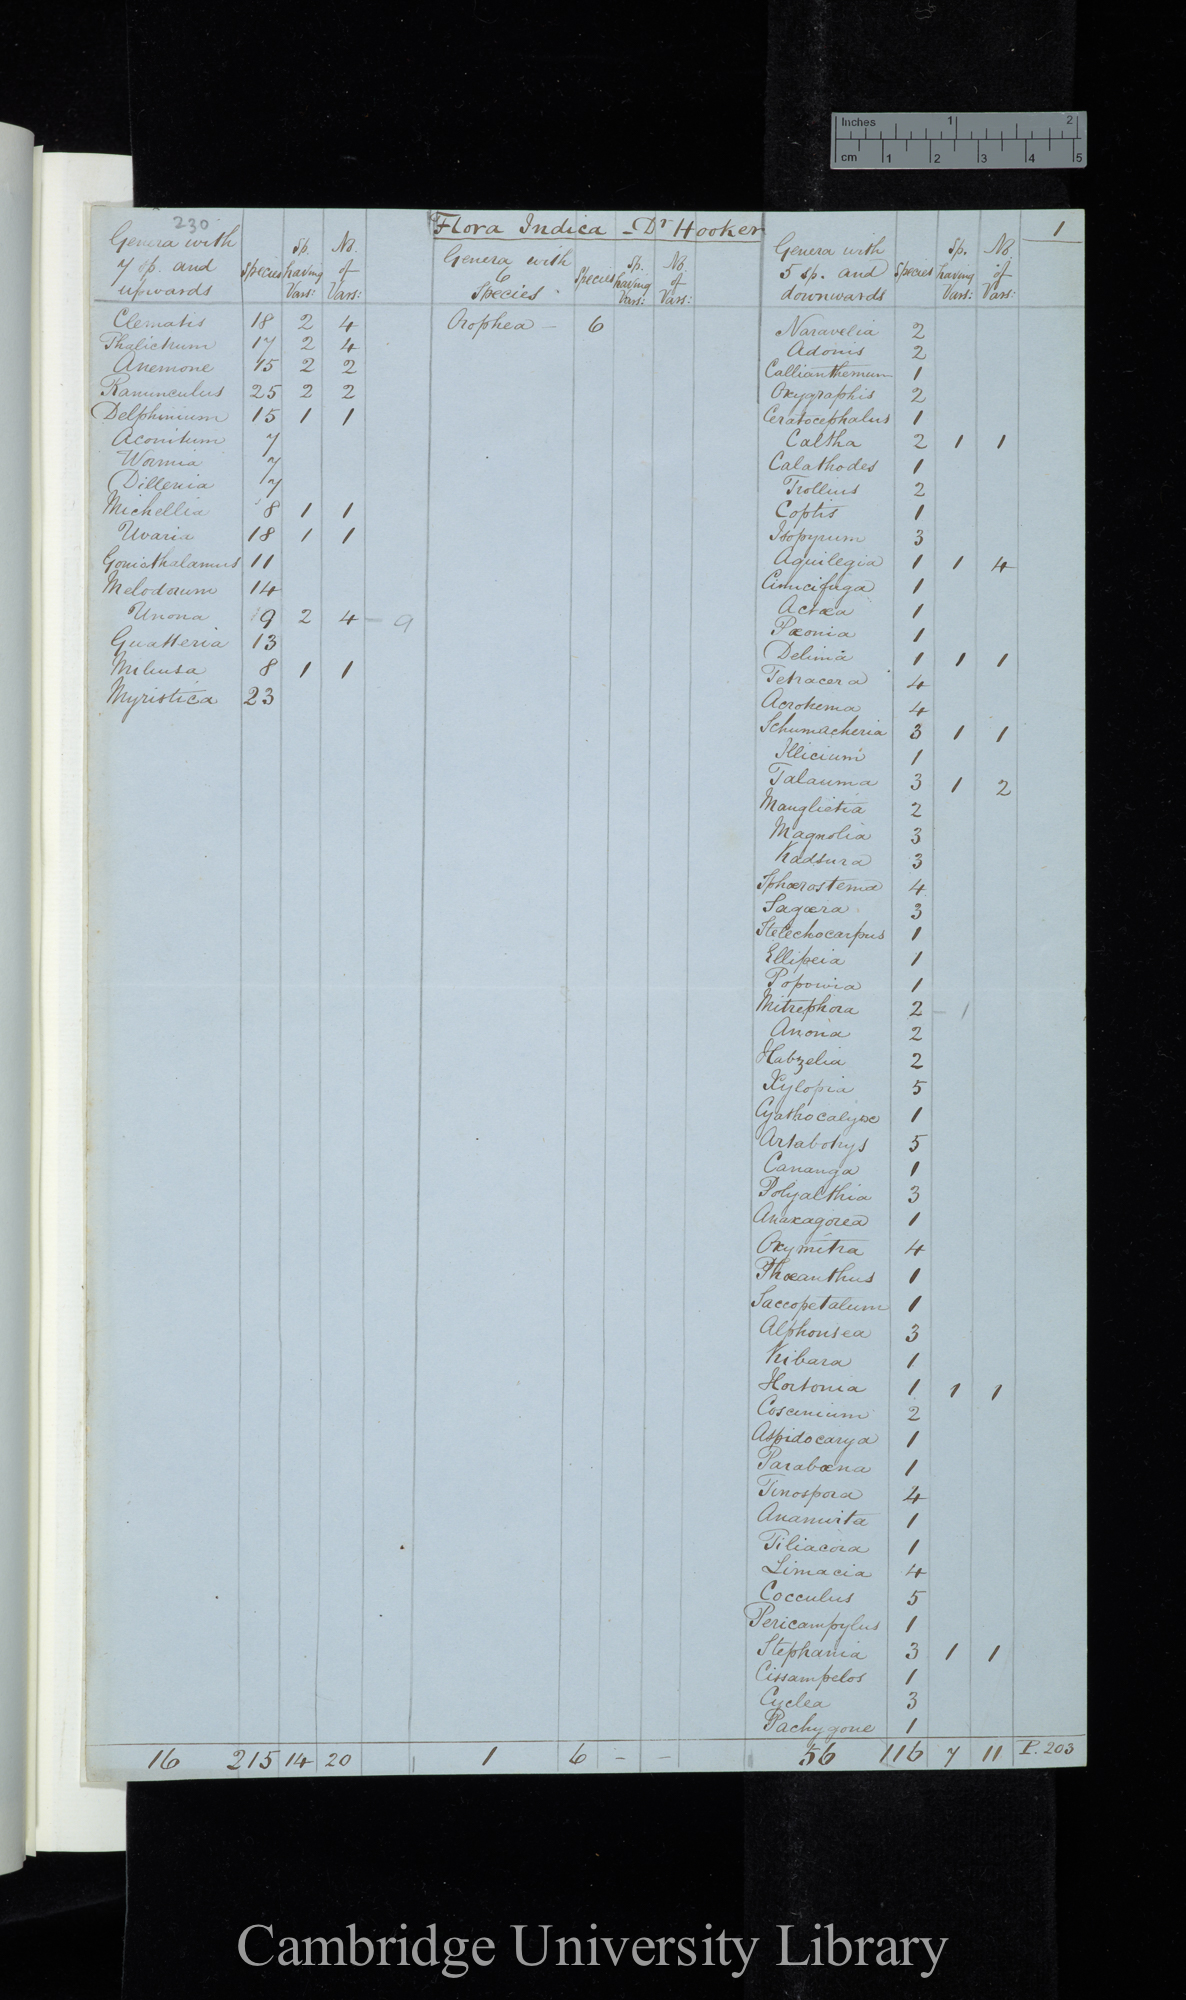 Inches 1 2
cm 1 2 3 4 5
230
Flora Indica - Dr Hooker
1
Genera with 7 sp. and upwards
Species
Sp. having Vars:
No. of Vars:
Clematis 18 2 4
Thalictrum 17 2 4
Anemone 15 2 2
Ranunculus 25 2 2
Delphinium 15 1 1
Aconitum 7
Wormia 7
Dillenia 7
Michellia 8 1 1
Uvaria 18 1 1
Goniothalamus 11
Melodorum 14
Unona 9 2 4 - 9
Guatteria 13
Miliusa 8 1 1
Myristica 23
16 215 14 20
Genera with 6 Species
Species
Sp. having Vars:
No. of Vars:
Orophea - 6
1 6 - -
Genera with 5 sp. and downwards
Species
Sp. having Vars:
No. of Vars:
Naravelia 2
Adonis 2
Callianthemum 1
Oxygraphis 2
Ceratocephalus 1
Caltha 2 1 1
Calathodes 1
Trollius 2
Coptis 1
Isopyrum 3
Aquilegia 1 1 4
Cimicifuga 1
Actæa 1
Pæonia 1
Delima 1 1 1
Tetracera 4
Acrotrema 4
Schumacheria 3 1 1
Illicium 1
Talauma 3 1 2
Manglietia 2
Magnolia 3
Kadsura 3
Sphærostema 4
Sagæra 3
Stelechocarpus 1
Ellipeia 1
Popowia 1
Mitrephora 2 - 1
Anona 2
Habzelia 2
Xylopia 5
Cyathocalyx 1
Artabotrys 5
Cananga 1
Polyalthia 3
Anaxagorea 1
Oxymitra 4
Phæanthus 1
Saccopetalum 1
Alphonsea 3
Kibara 1
Hortonia 1 1 1
Coscinium 2
Aspidocarya 1
Parabæna 1
Tinospora 4
Anamirta 1
Tiliacora 1
Limacia 4
Cocculus 5
Pericampylus 1
Stephania 3 1 1
Cissampelos 1
Cyclea 3
Pachygone 1
56 116 7 11 P. 203
Cambridge University Library